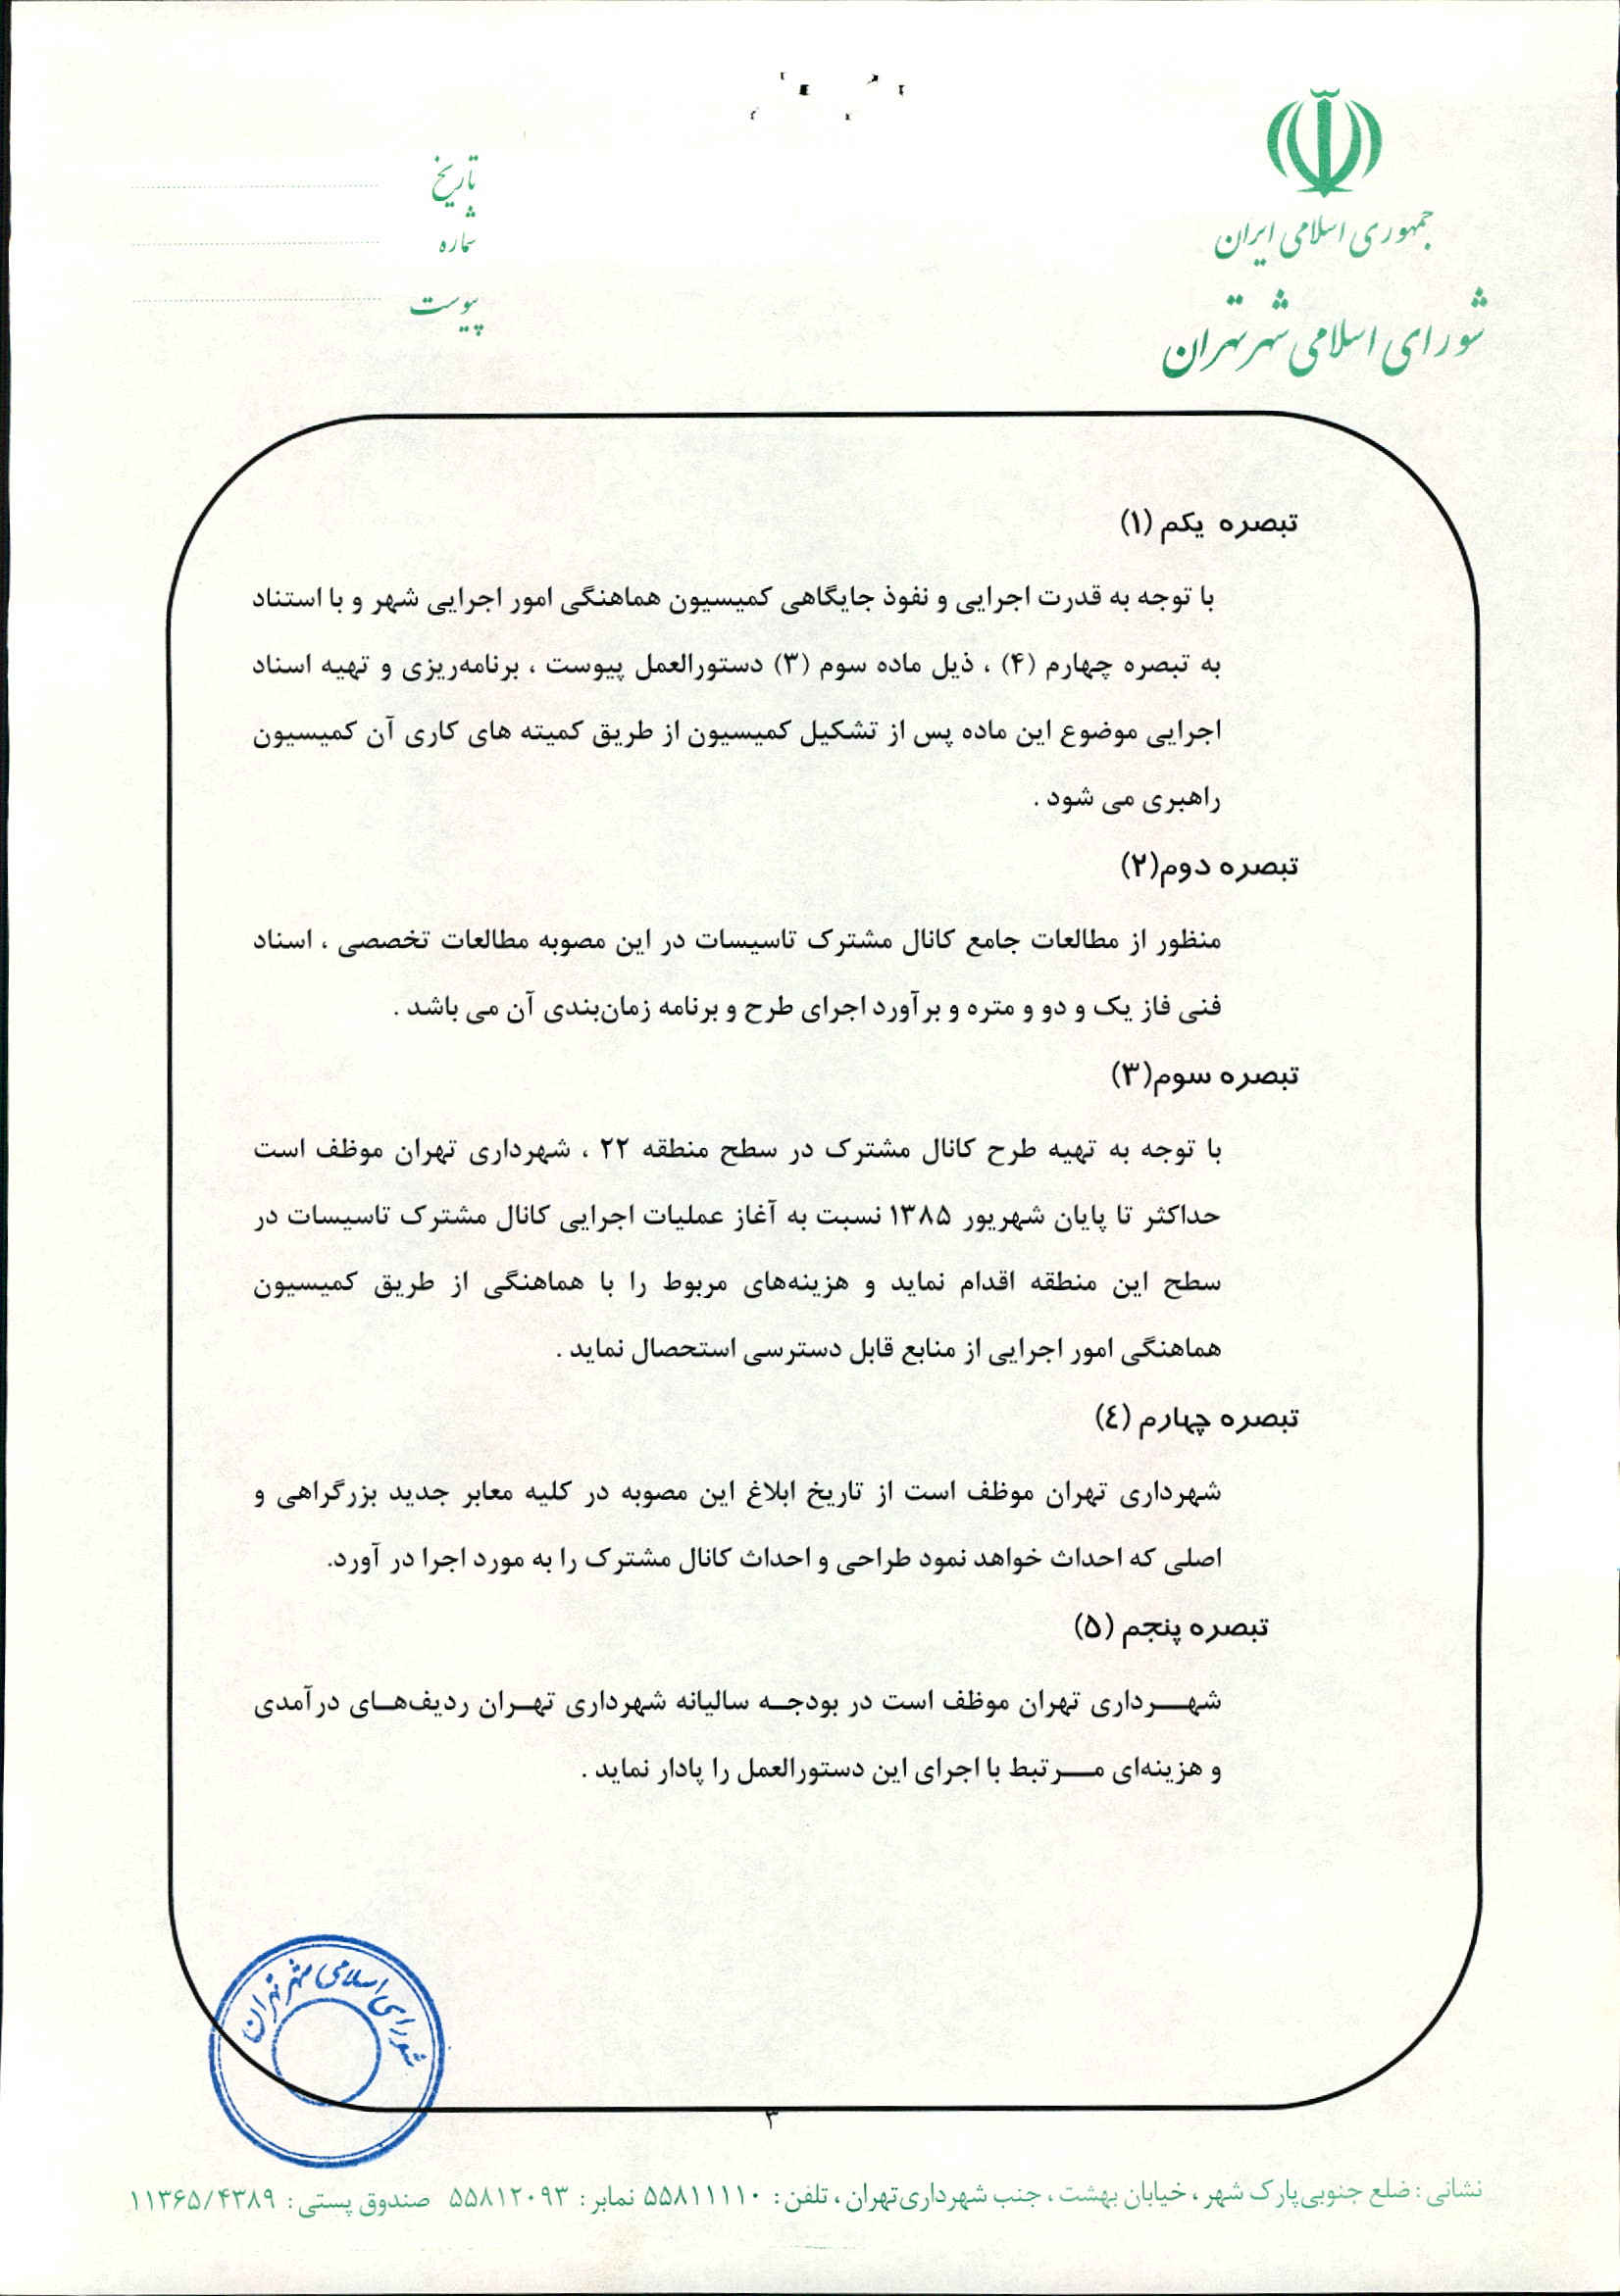 جمهوری اسلامی ایران
شورای اسلامی شهر تهران
تاریخ
شماره
پیوست
تبصره یکم (۱)
با توجه به قدرت اجرایی و نفوذ جایگاهی کمیسیون هماهنگی امور اجرایی شهر و با استناد
به تبصره چهارم (۴) ، ذیل ماده سوم (۳) دستورالعمل پیوست ، برنامه‌ریزی و تهیه اسناد
اجرایی موضوع این ماده پس از تشکیل کمیسیون از طریق کمیته های کاری آن کمیسیون
راهبری می شود .
تبصره دوم(۲)
منظور از مطالعات جامع کانال مشترک تاسیسات در این مصوبه مطالعات تخصصی ، اسناد
فنی فاز یک و دو و متره و برآورد اجرای طرح و برنامه زمان‌بندی آن می باشد .
تبصره سوم(۳)
با توجه به تهیه طرح کانال مشترک در سطح منطقه ۲۲ ، شهرداری تهران موظف است
حداکثر تا پایان شهریور ۱۳۸۵ نسبت به آغاز عملیات اجرایی کانال مشترک تاسیسات در
سطح این منطقه اقدام نماید و هزینه‌های مربوط را با هماهنگی از طریق کمیسیون
هماهنگی امور اجرایی از منابع قابل دسترسی استحصال نماید .
تبصره چهارم (٤)
شهرداری تهران موظف است از تاریخ ابلاغ این مصوبه در کلیه معابر جدید بزرگراهی و
اصلی که احداث خواهد نمود طراحی و احداث کانال مشترک را به مورد اجرا در آورد.
تبصره پنجم (۵)
شهـــرداری تهران موظف است در بودجــه سالیانه شهرداری تهــران ردیف‌هــای درآمدی
و هزینه‌ای مـــرتبط با اجرای این دستورالعمل را پادار نماید .
شورای اسلامی شهر تهران
۳
نشانی : ضلع جنوبی‌پارک شهر ، خیابان بهشت ، جنب شهرداری‌تهران ، تلفن : ۵۵۸۱۱۱۱۰ نمابر : ۵۵۸۱۲۰۹۳ صندوق پستی : ۱۱۳۶۵/۴۳۸۹